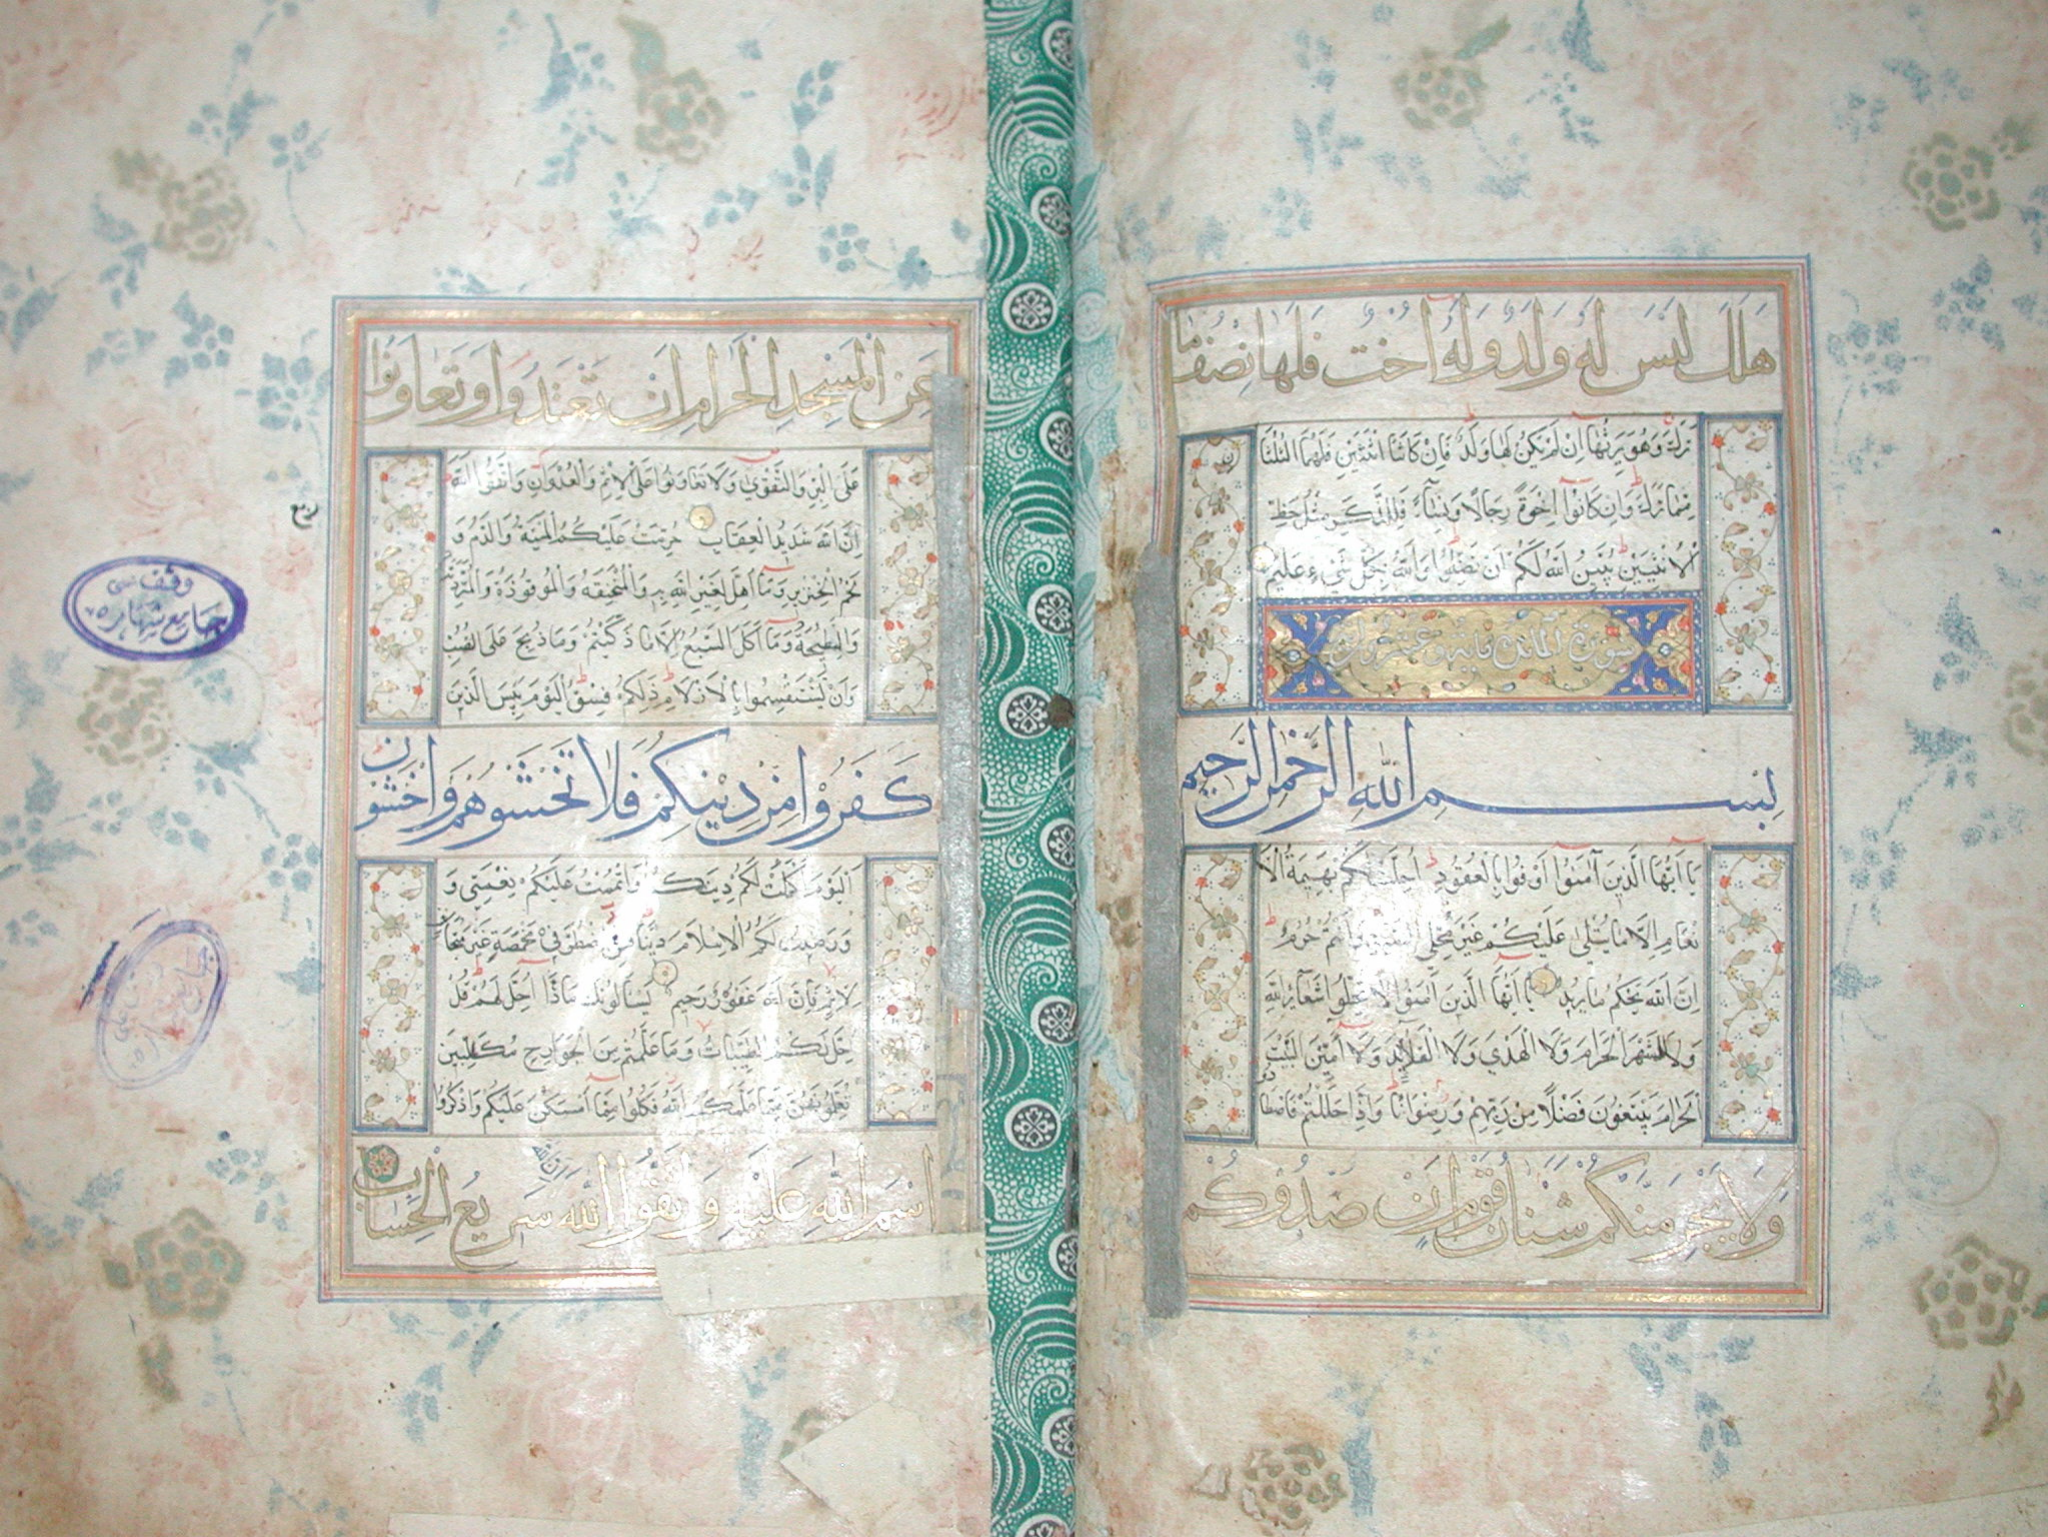 هلك ليس له ولد وله أخت فلها نصف ما
ترك وهو يرثها ان لم يكن لها ولد فان كانتا اثنتين فلهما الثلثا
ن
مما ترك وان كانوا اخوة رجالا ونساء فللذكر مثل حظ
الانثيين يبين الله لكم ان تضلوا والله بكل شيء عليم
سورة المائدة مائة وعشرون
بسم الله الرحمن الرحيم
يا ايها الذين آمنوا اوفوا بالعقود احلت لكم بهيمة الا
نعام الا ما يتلى عليكم غير محلي الصيد وانتم حرم
ان الله يحكم ما يريد يا ايها الذين آمنوا لا تحلوا شعائر الله
ولا الشهر الحرام ولا الهدي ولا القلائد ولا آمين البيت
الحرام يبتغون فضلا من ربهم ورضوانا واذا حللتم فاصطا
دو
ولا يجرمنكم شنان قوم ان صدوكم
عن المسجد الحرام ان تعتدوا وتعاونوا
على البر والتقوى ولا تعاونوا على الاثم والعدوان واتقوا الله
ان الله شديد العقاب حرمت عليكم الميتة والدم و
لحم الخنزير وما اهل لغير الله به والمنخنقة والموقوذة والمتردية
والنطيحة وما اكل السبع الا ما ذكيتم وما ذبح على النصب
وان تستقسموا بالازلام ذلكم فسق اليوم يئس الذين
كفروا من دينكم فلا تخشوهم واخشون
اليوم اكملت لكم دينكم واتممت عليكم نعمتي و
ورضيت لكم الاسلام دينا فمن اضطر في مخمصة غير متجانف
لاثم فان الله غفور رحيم يسألونك ماذا احل لهم قل
احل لكم الطيبات وما علمتم من الجوارح مكلبين
تعلمونهن مما علمكم الله فكلوا مما امسكن عليكم واذكروا
اسم الله عليه واتقوا الله ان الله سريع الحساب
ربع
وقف
جامع شهاره